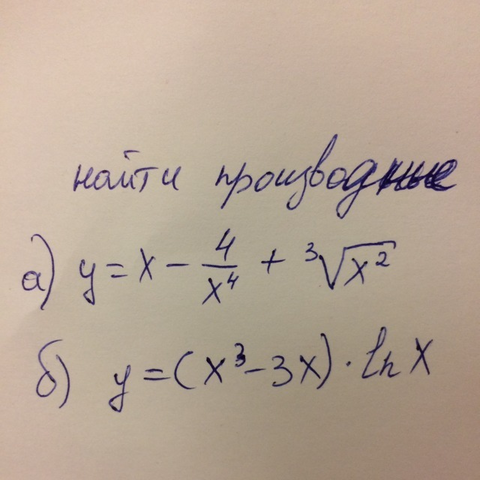 найти производные
а) y = x - 4/x⁴ + ³√x²
б) y = (x³ - 3x) · ln x